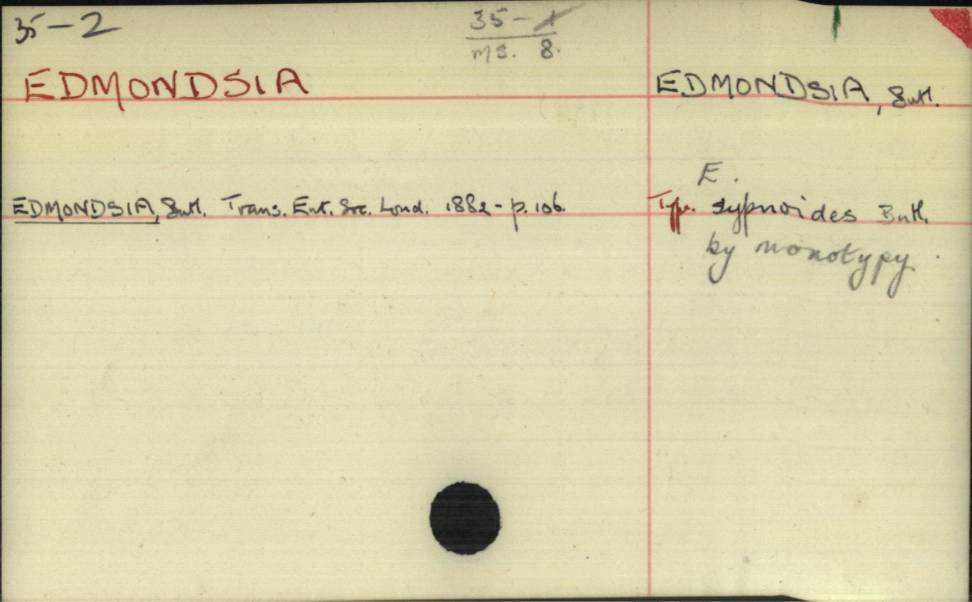 35-2
35-1
ms. 8.
EDMONDSIA
EDMONDSIA, Butl.
E.
EDMONDSIA, Butl. Trans. Ent. Soc. Lond. 1882 - p. 106.
Type. sypnoides Butl.
by monotypy.